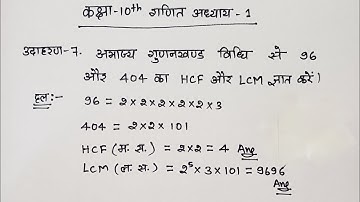 कक्षा-10th गणित अध्याय-1
उदाहरण-7. अभाज्य गुणनखण्ड विधि से 96
और 404 का HCF और LCM ज्ञात करें।
हल:-
96 = 2×2×2×2×2×3
404 = 2×2×101
HCF (म. स.) = 2×2 = 4 Ans
LCM (ल. स.) = 2⁵×3×101 = 9696
Ans